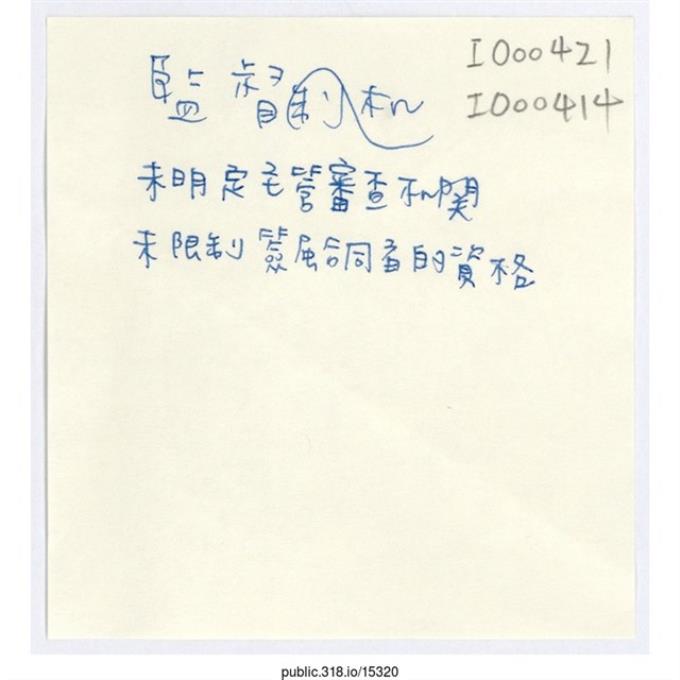 I000421
I000414
監督制机
未明定主管審查机関
未限制簽屆詞者的資格
public.318.io/15320